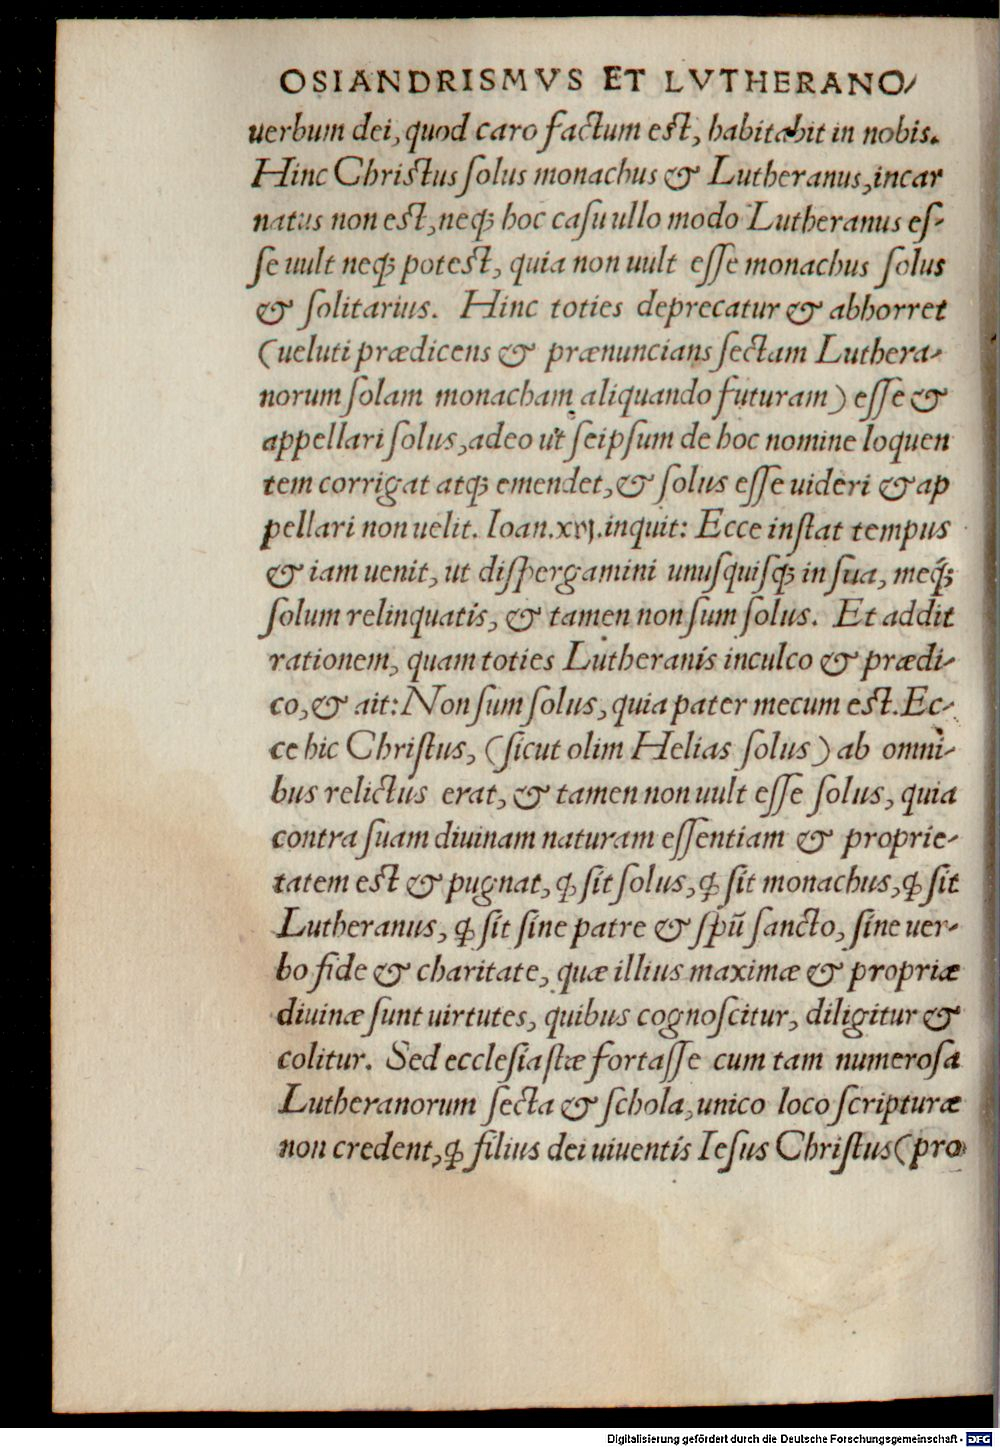 OSIANDRISMVS ET LVTHERANO/
uerbum dei, quod caro factum est, habitabit in nobis.
Hinc Christus solus monachus & Lutheranus, incar
natus non est, neqꝫ hoc casu ullo modo Lutheranus es-
se uult neqꝫ potest, quia non uult esse monachus solus
& solitarius. Hinc toties deprecatur & abhorret
(ueluti prædicens & prænuncians sectam Luthera-
norum solam monacham aliquando futuram) esse &
appellari solus, adeo ut seipsum de hoc nomine loquen
tem corrigat atqꝫ emendet, & solus esse uideri & ap
pellari non uelit. Ioan.xvj.inquit: Ecce instat tempus
& iam uenit, ut dispergamini unusquisqꝫ in sua, meqꝫ
solum relinquatis, & tamen non sum solus. Et addit
rationem, quam toties Lutheranis inculco & prædi-
co, & ait: Non sum solus, quia pater mecum est. Ec-
ce hic Christus, (sicut olim Helias solus) ab omni-
bus relictus erat, & tamen non uult esse solus, quia
contra suam diuinam naturam essentiam & proprie-
tatem est & pugnat, ꝙ sit solus, ꝙ sit monachus, ꝙ sit
Lutheranus, ꝙ sit sine patre & spū sancto, sine uer-
bo fide & charitate, quæ illius maximæ & propriæ
diuinæ sunt uirtutes, quibus cognoscitur, diligitur &
colitur. Sed ecclesiastæ fortasse cum tam numerosa
Lutheranorum secta & schola, unico loco scripturæ
non credent, ꝙ filius dei uiuentis Iesus Christus (pro
Digitalisierung gefördert durch die Deutsche Forschungsgemeinschaft - DFG